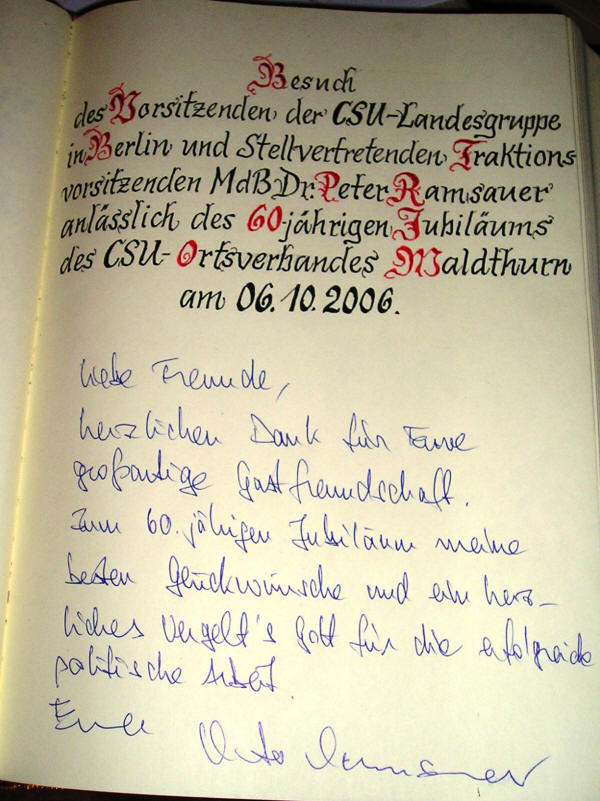 Besuch
des Vorsitzenden der CSU-Landesgruppe
in Berlin und Stellvertretenden Fraktions
vorsitzenden MdB Dr. Peter Ramsauer
anlässlich des 60jährigen Jubiläums
des CSU-Ortsverbandes Waldthurn
am 06.10.2006.
Liebe Freunde,
herzlichen Dank für Eure
großartige Gastfreundschaft.
Zum 60. jährigen Jubiläum meine
besten Glückwünsche und ein herz-
liches Vergelt's Gott für die erfolgreiche
politische Arbeit.
Euer Peter Ramsauer